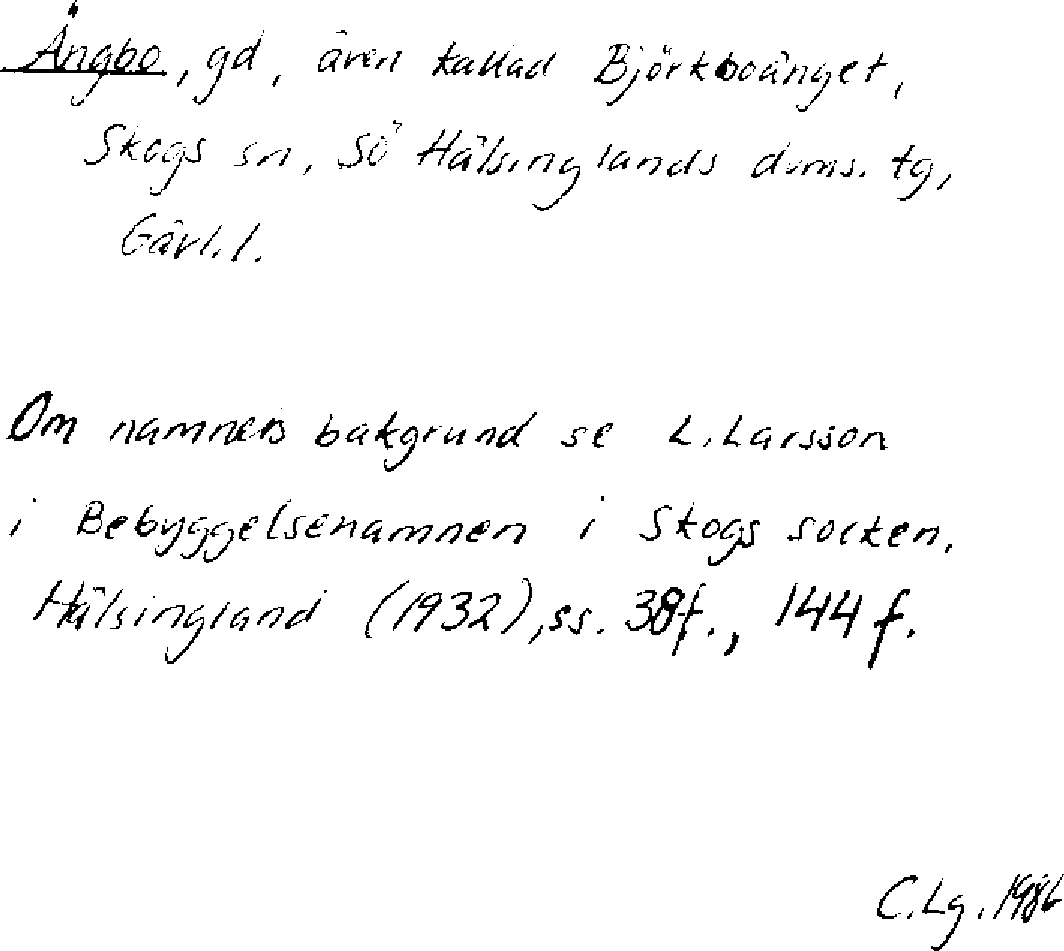 Ängbo, gd, även kallad Björkboänget,
Skogs sn, Sö Hälsinglands doms. tg,
Gävl. l.
Om namnets bakgrund se L. Larsson
i Bebyggelsenamnen i Skogs socken,
Hälsingland (1932), ss. 38f., 144 f.
C. Lg. 1986